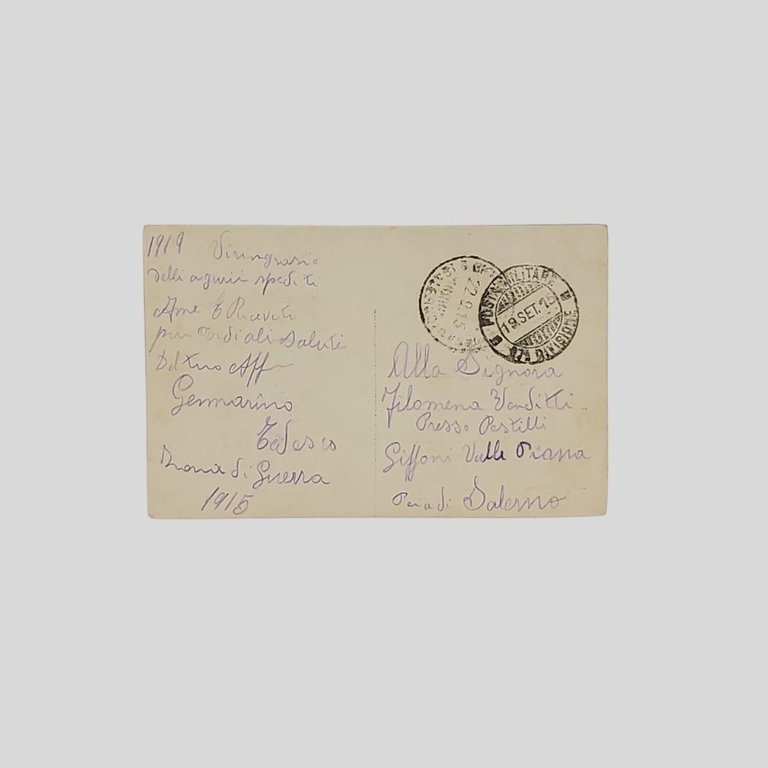 1919 Viringrazio
Delli agurii spediti
Ame E Riceveti
piu Cordiali Saluti
Del tuo Aff
Gennarino
Tedesco
Zona di Guerra
1915
POSTA MILITARE
19.SET.15
DIVISIONE
22.9.15
Alla Signora
Filomena Venditti
Presso Pestilli
Giffoni Valle Piana
di Salerno